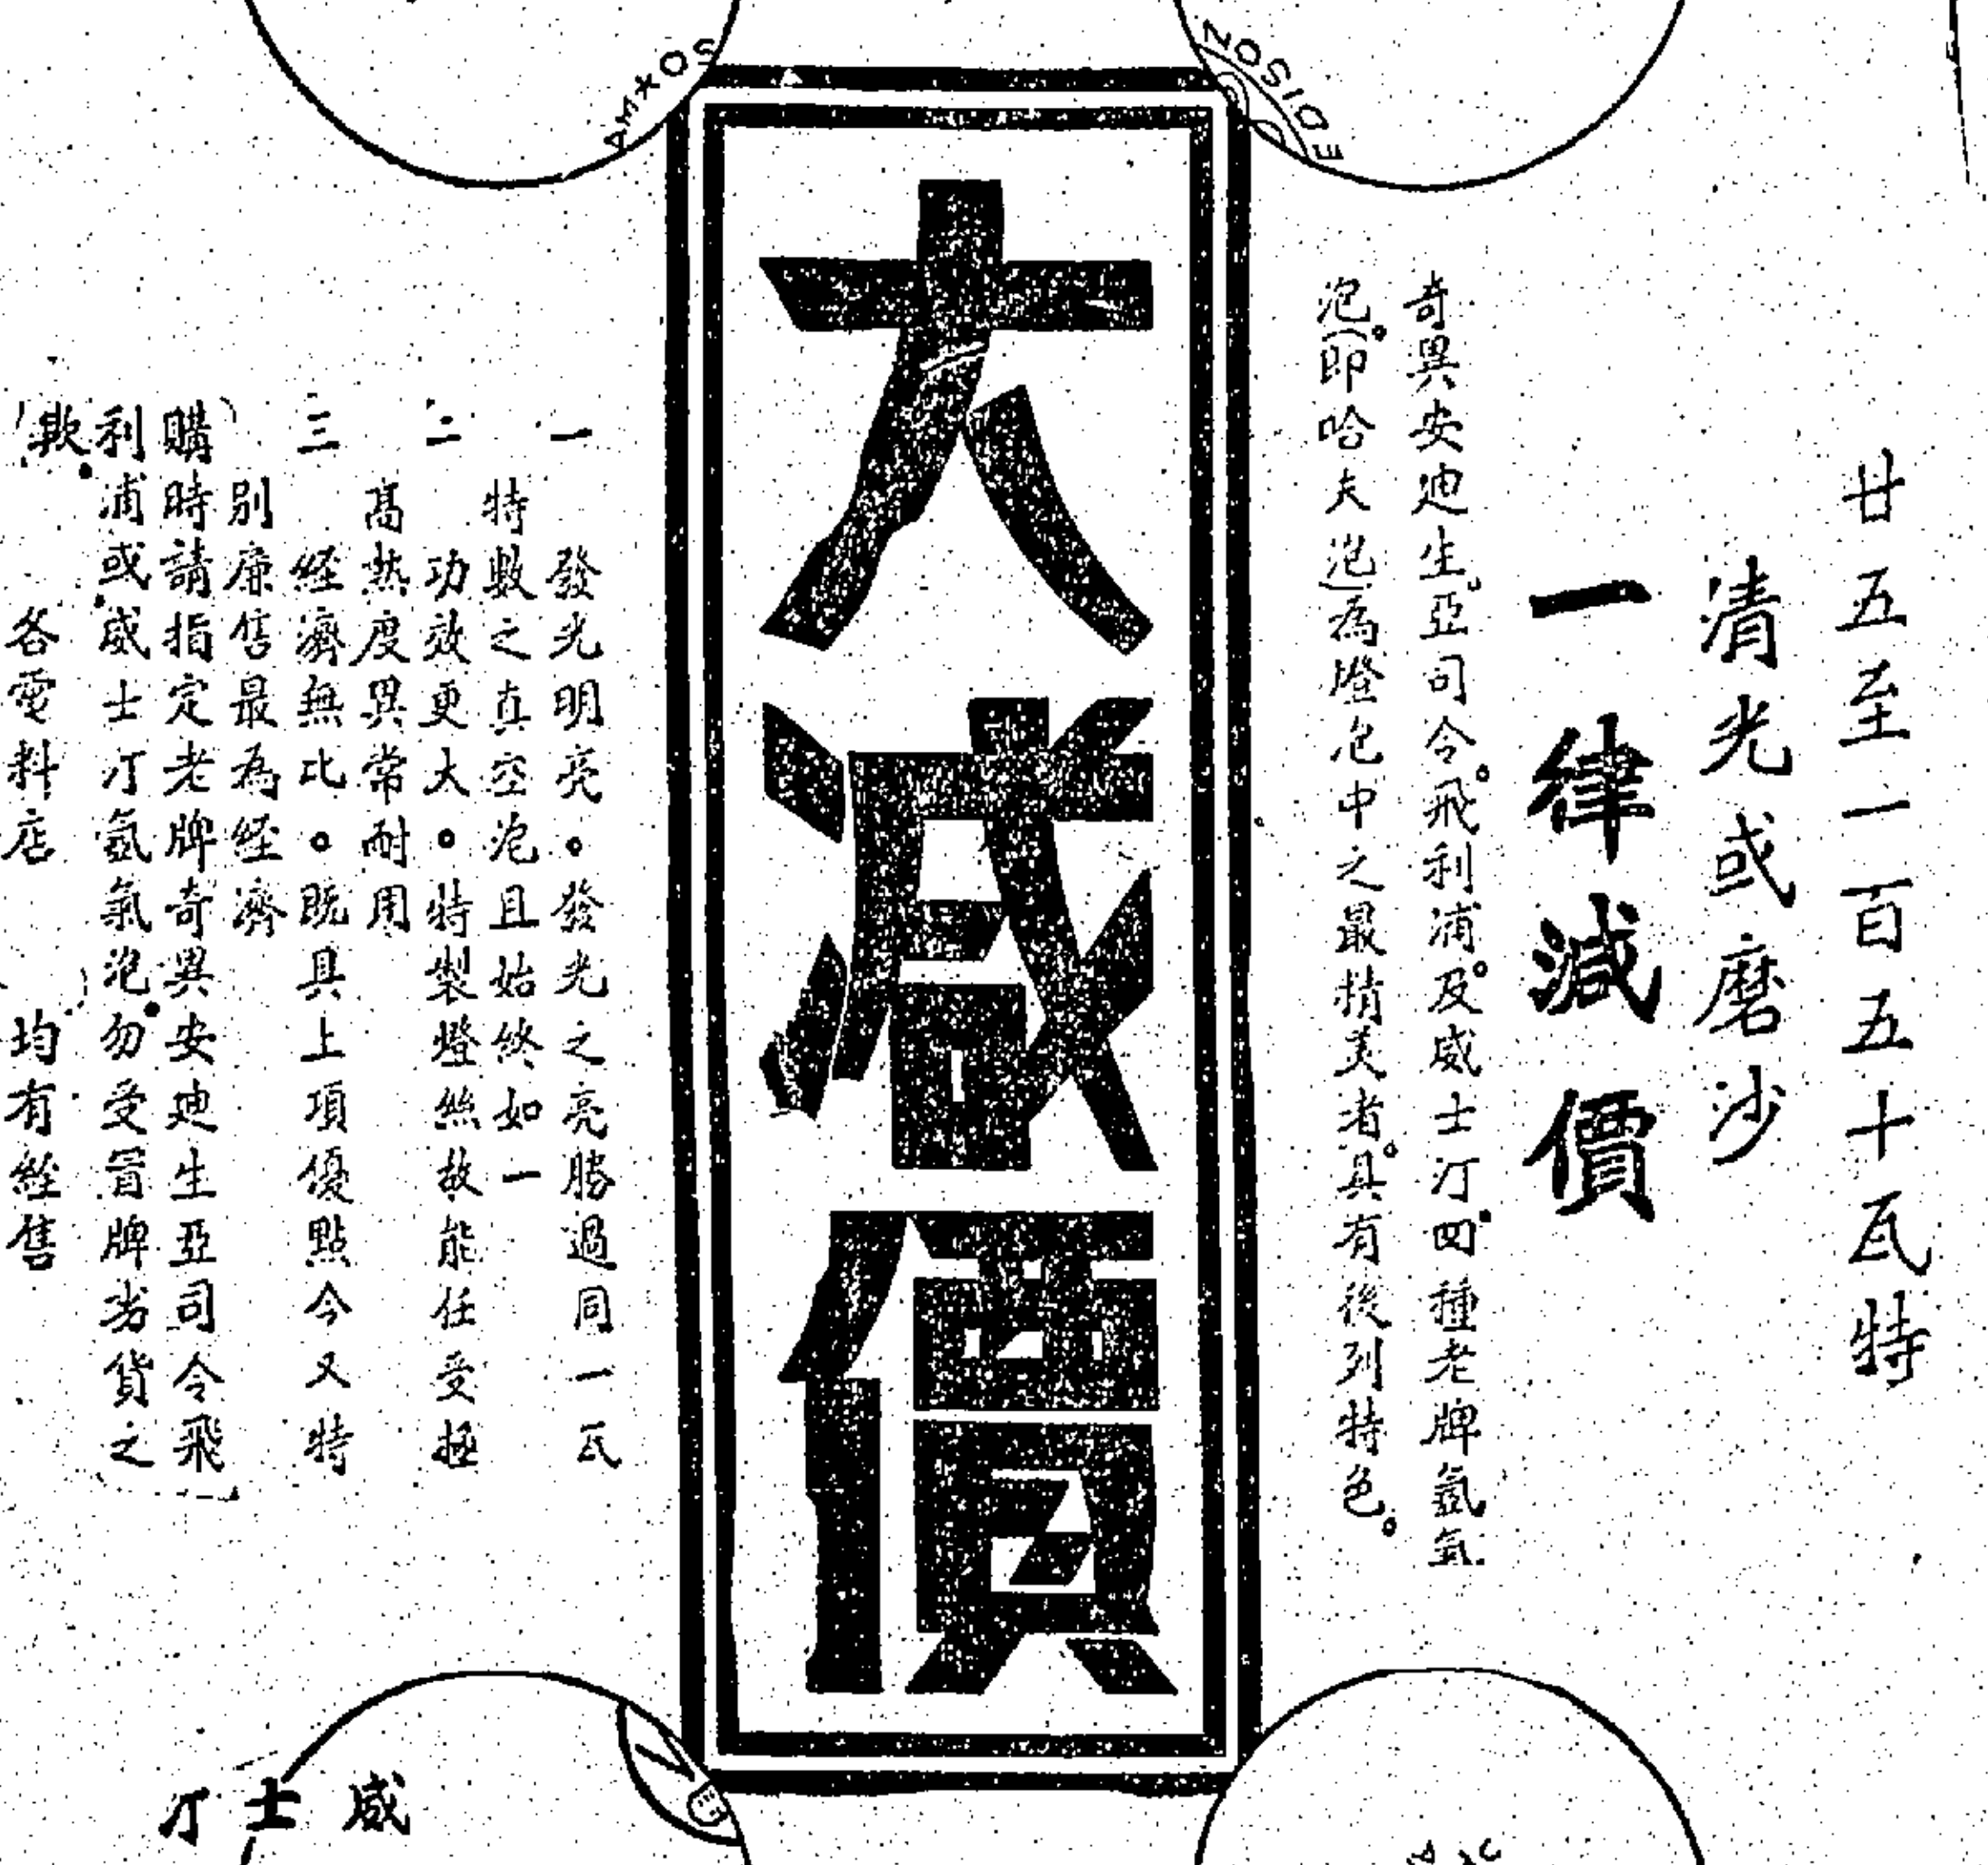 廿五至一百五十瓦特
清光或磨沙
一律減價
奇異安迪生。亞司令。飛利浦。及威士汀四種老牌氬氣
泡。(即哈夫泡)為燈泡中之最精美者。具有後列特色。
大減價
一 發光明亮。發光之亮勝過同一瓦
特數之真空泡且始終如一
二 功效更大。特製燈絲故能任受極
高热度異常耐用
三 経濟無比。既具上項優點今又特
别廉售最為経濟
購時請指定老牌奇異安廸生亞司令飛
利浦或威士汀氬氣泡勿受冒牌劣貨之
欺
各電料店 均有経售
EDISON
威士汀